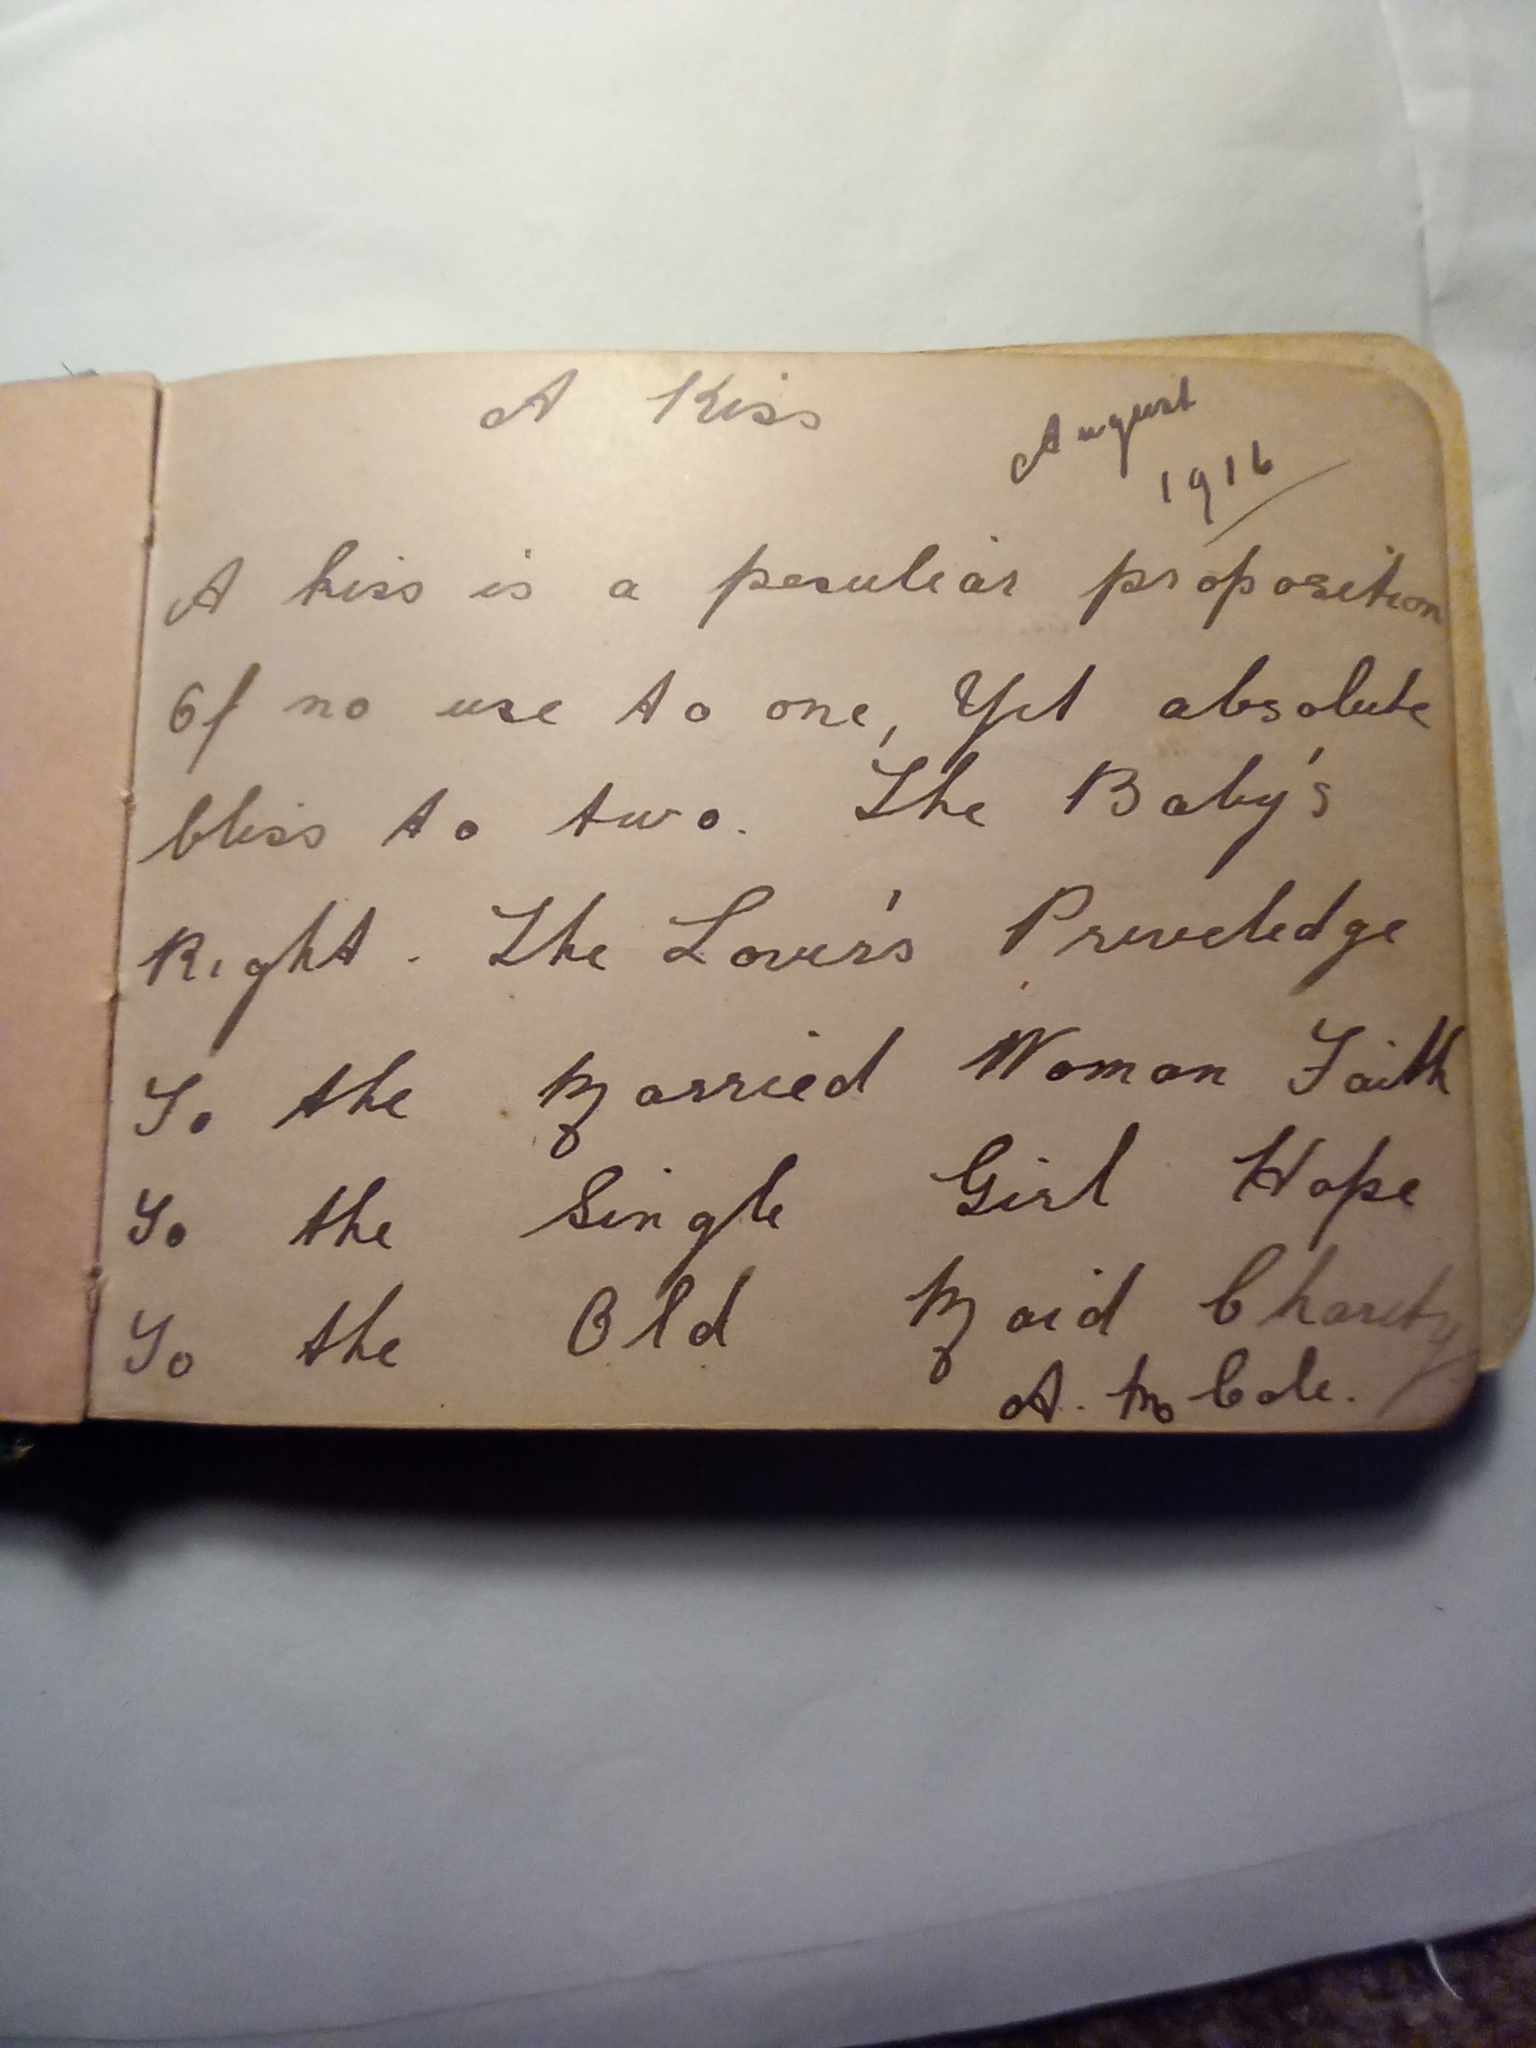 A Kiss
August
1916
A kiss is a peculiar proposition
Of no use to one, Yet absolute
bliss to two. The Baby's
Right. The Lover's Priveledge
To the Married Woman Faith
To the Single Girl Hope
To the Old Maid Charity
A. M. Cole.